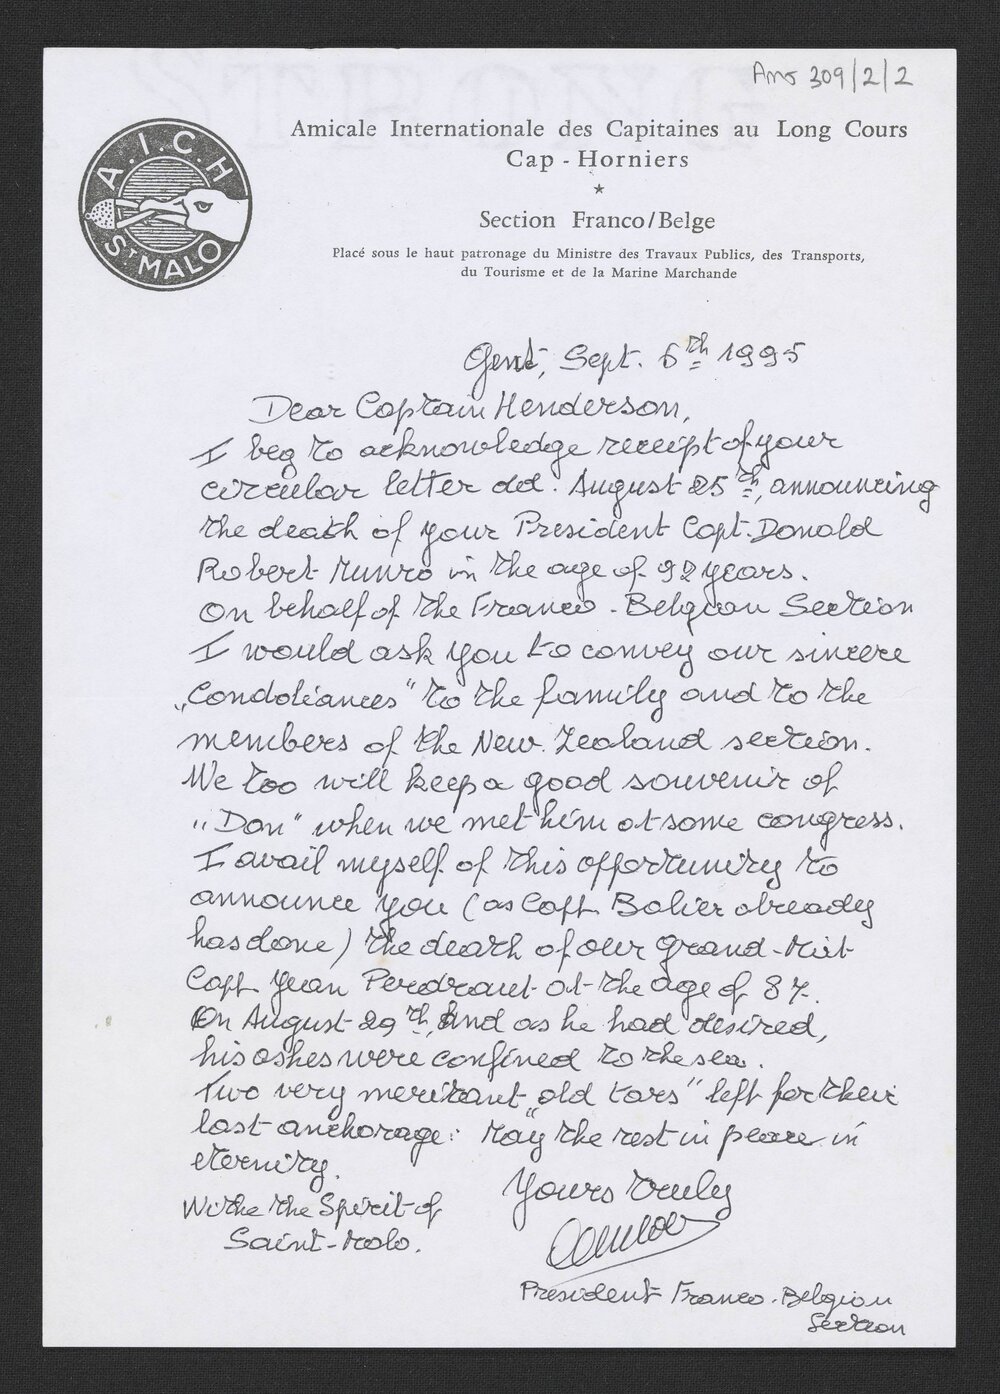 Ams 309/2/2
A.I.C.H
ST MALO
Amicale Internationale des Capitaines au Long Cours
Cap - Horniers
*
Section Franco/Belge
Placé sous le haut patronage du Ministre des Travaux Publics, des Transports,
du Tourisme et de la Marine Marchande
Gent, Sept. 6th 1995
Dear Captain Henderson,
I beg to acknowledge receipt of your
circular letter dd. August 25th, announcing
the death of your President Capt. Donald
Robert Munro in the age of 92 years.
On behalf of the Franco-Belgian Section
I would ask you to convey our sincere
„Condoléances" to the family and to the
members of the New. Zealand section.
We too will keep a good souvenir of
"Don" when we met him at some congress.
I avail myself of this opportunity to
announce you (as Capt. already
has done) the death of our grand-mât
Capt. Yean Perdraut at the age of 87.
On August 29th, and as he had desired,
his ashes were confined to the sea.
Two very meritant „old tars" left for their
last anchorage: May the rest in peace in
eternity.
Withe the Spirit of
Saint-Malo.
Yours truly
President Franco-Belgian
Section